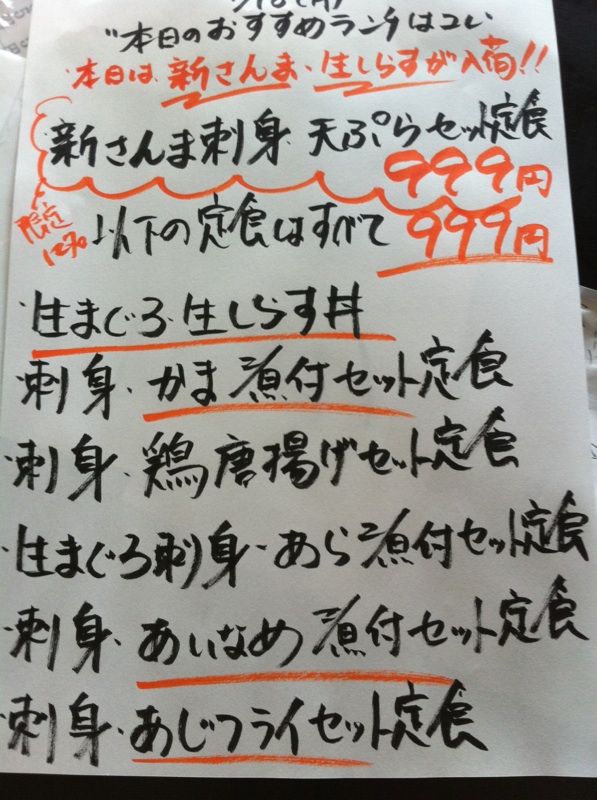 "本日のおすすめランチはコレ
本日は、新さんま・生しらすが入荷!!
新さんま刺身 天ぷらセット定食
999円
限定
以下の定食はすべて 999円
・生まぐろ・生しらす丼
・刺身・かま煮付セット定食
・刺身・鶏唐揚げセット定食
・生まぐろ刺身・あら煮付セット定食
・刺身・あいなめ煮付セット定食
・刺身・あじフライセット定食